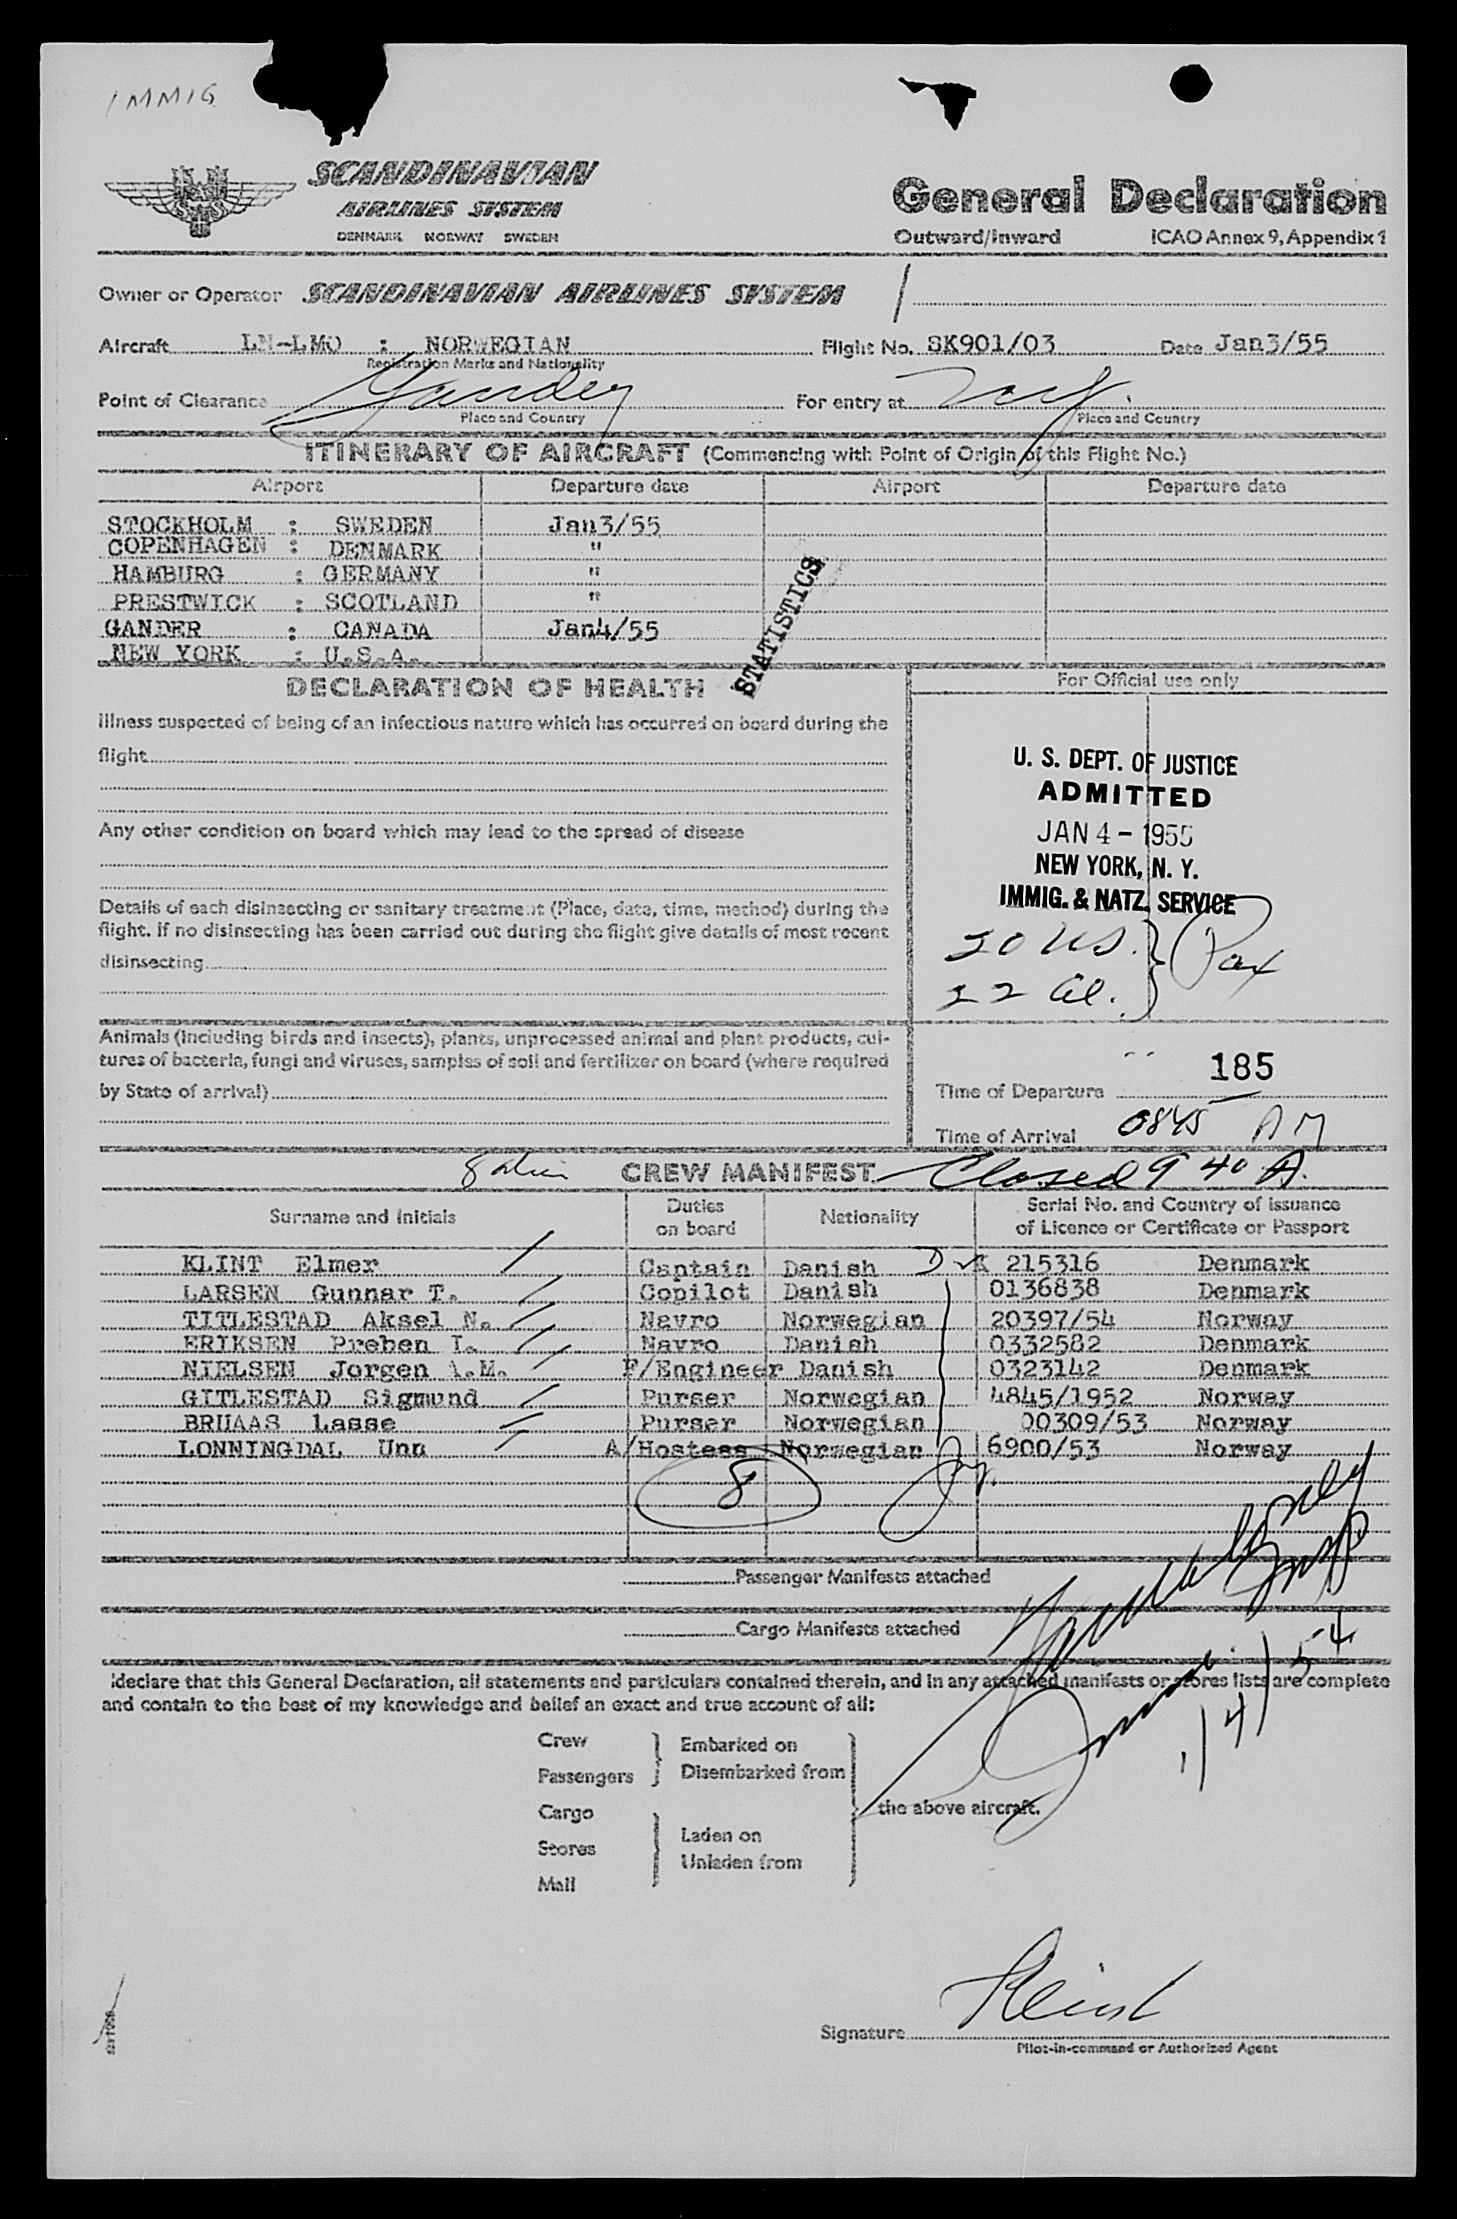 IMMIG
SCANDINAVIAN
AIRLINES SYSTEM
DENMARK NORWAY SWEDEN
General Declaration
Outward/Inward ICAO Annex 9, Appendix 1
Owner or Operator SCANDINAVIAN AIRLINES SYSTEM
Aircraft LN-LMO : NORWEGIAN Flight No. SK901/03 Date Jan3/55
Registration Marks and Nationality
Point of Clearance Gander For entry at
Place and Country Place and Country
ITINERARY OF AIRCRAFT (Commencing with Point of Origin of this Flight No.)
Airport Departure date Airport Departure date
STOCKHOLM : SWEDEN Jan3/55
COPENHAGEN : DENMARK "
HAMBURG : GERMANY "
PRESTWICK : SCOTLAND "
GANDER : CANADA Jan4/55
NEW YORK : U.S.A.
STATISTICS
DECLARATION OF HEALTH
Illness suspected of being of an infectious nature which has occurred on board during the
flight
Any other condition on board which may lead to the spread of disease
Details of each disinsecting or sanitary treatment (Place, date, time, method) during the
flight. If no disinsecting has been carried out during the flight give details of most recent
disinsecting
Animals (including birds and insects), plants, unprocessed animal and plant products, cul-
tures of bacteria, fungi and viruses, samples of soil and fertilizer on board (where required
by State of arrival)
For Official use only
U. S. DEPT. OF JUSTICE
ADMITTED
JAN 4 - 1955
NEW YORK, N. Y.
IMMIG. & NATZ. SERVICE
20 US. } Pax
22 al.
185
Time of Departure
Time of Arrival 0845 AM
8 alien CREW MANIFEST Closed 9 40 A.
Surname and Initials Duties on board Nationality Serial No. and Country of issuance of Licence or Certificate or Passport
KLINT Elmer Captain Danish D K 215316 Denmark
LARSEN Gunnar T. Copilot Danish 0136838 Denmark
TITLESTAD Aksel N. Navro Norwegian 20397/54 Norway
ERIKSEN Preben I. Navro Danish 0332582 Denmark
NIELSEN Jorgen A.M. F/Engineer Danish 0323142 Denmark
GITLESTAD Sigmund Purser Norwegian 4845/1952 Norway
BRUAAS Lasse Purser Norwegian 00309/53 Norway
LONNINGDAL Unn A/Hostess Norwegian 6900/53 Norway
8
Passenger Manifests attached
Cargo Manifests attached
1/4/54
I declare that this General Declaration, all statements and particulars contained therein, and in any attached manifests or stores lists are complete
and contain to the best of my knowledge and belief an exact and true account of all:
Crew
Passengers
Embarked on
Disembarked from
Cargo
Stores
Mail
Laden on
Unladen from
the above aircraft.
Signature Klint
Pilot-in-command or Authorized Agent